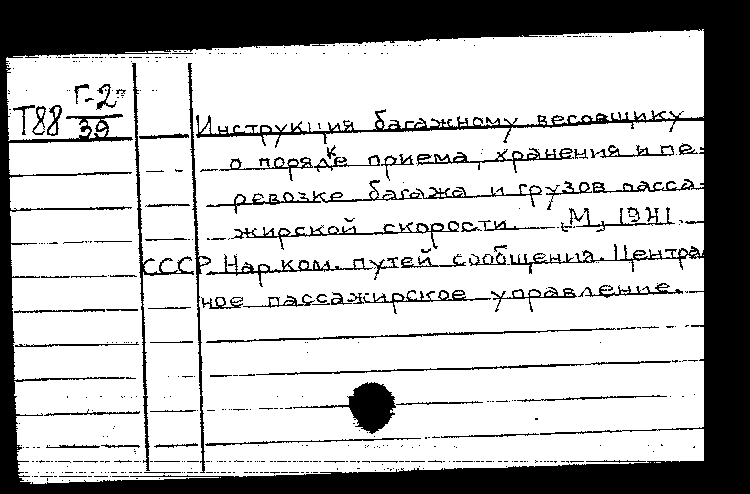 Г-2
Т88 39
Инструкция багажному весовщику
о порядке приема, хранения и пе-
ревозке багажа и грузов пасса-
жирской скорости. [М], 1941.
СССР. Нар.ком. путей сообщения. Централ
ное пассажирское управление.